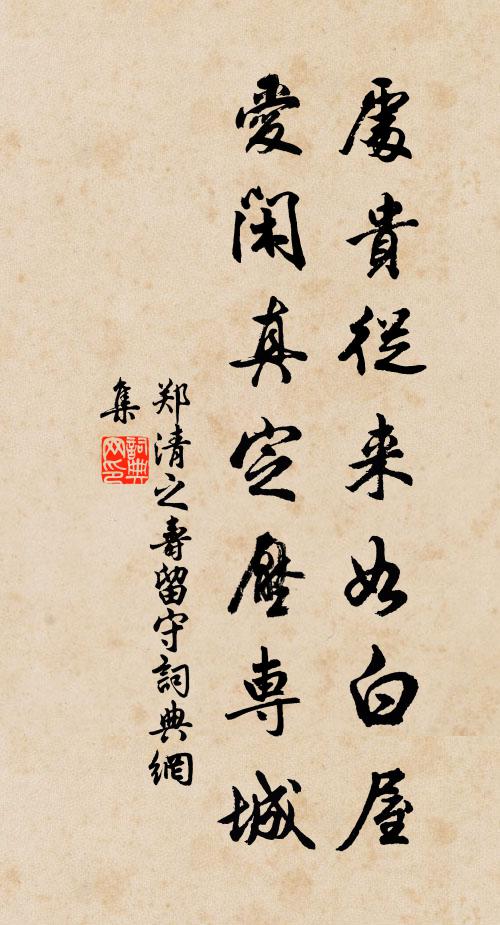 處貴從来如白屋
愛閑真定壓專城
郑清之壽留守詞典網
集
詞典网印